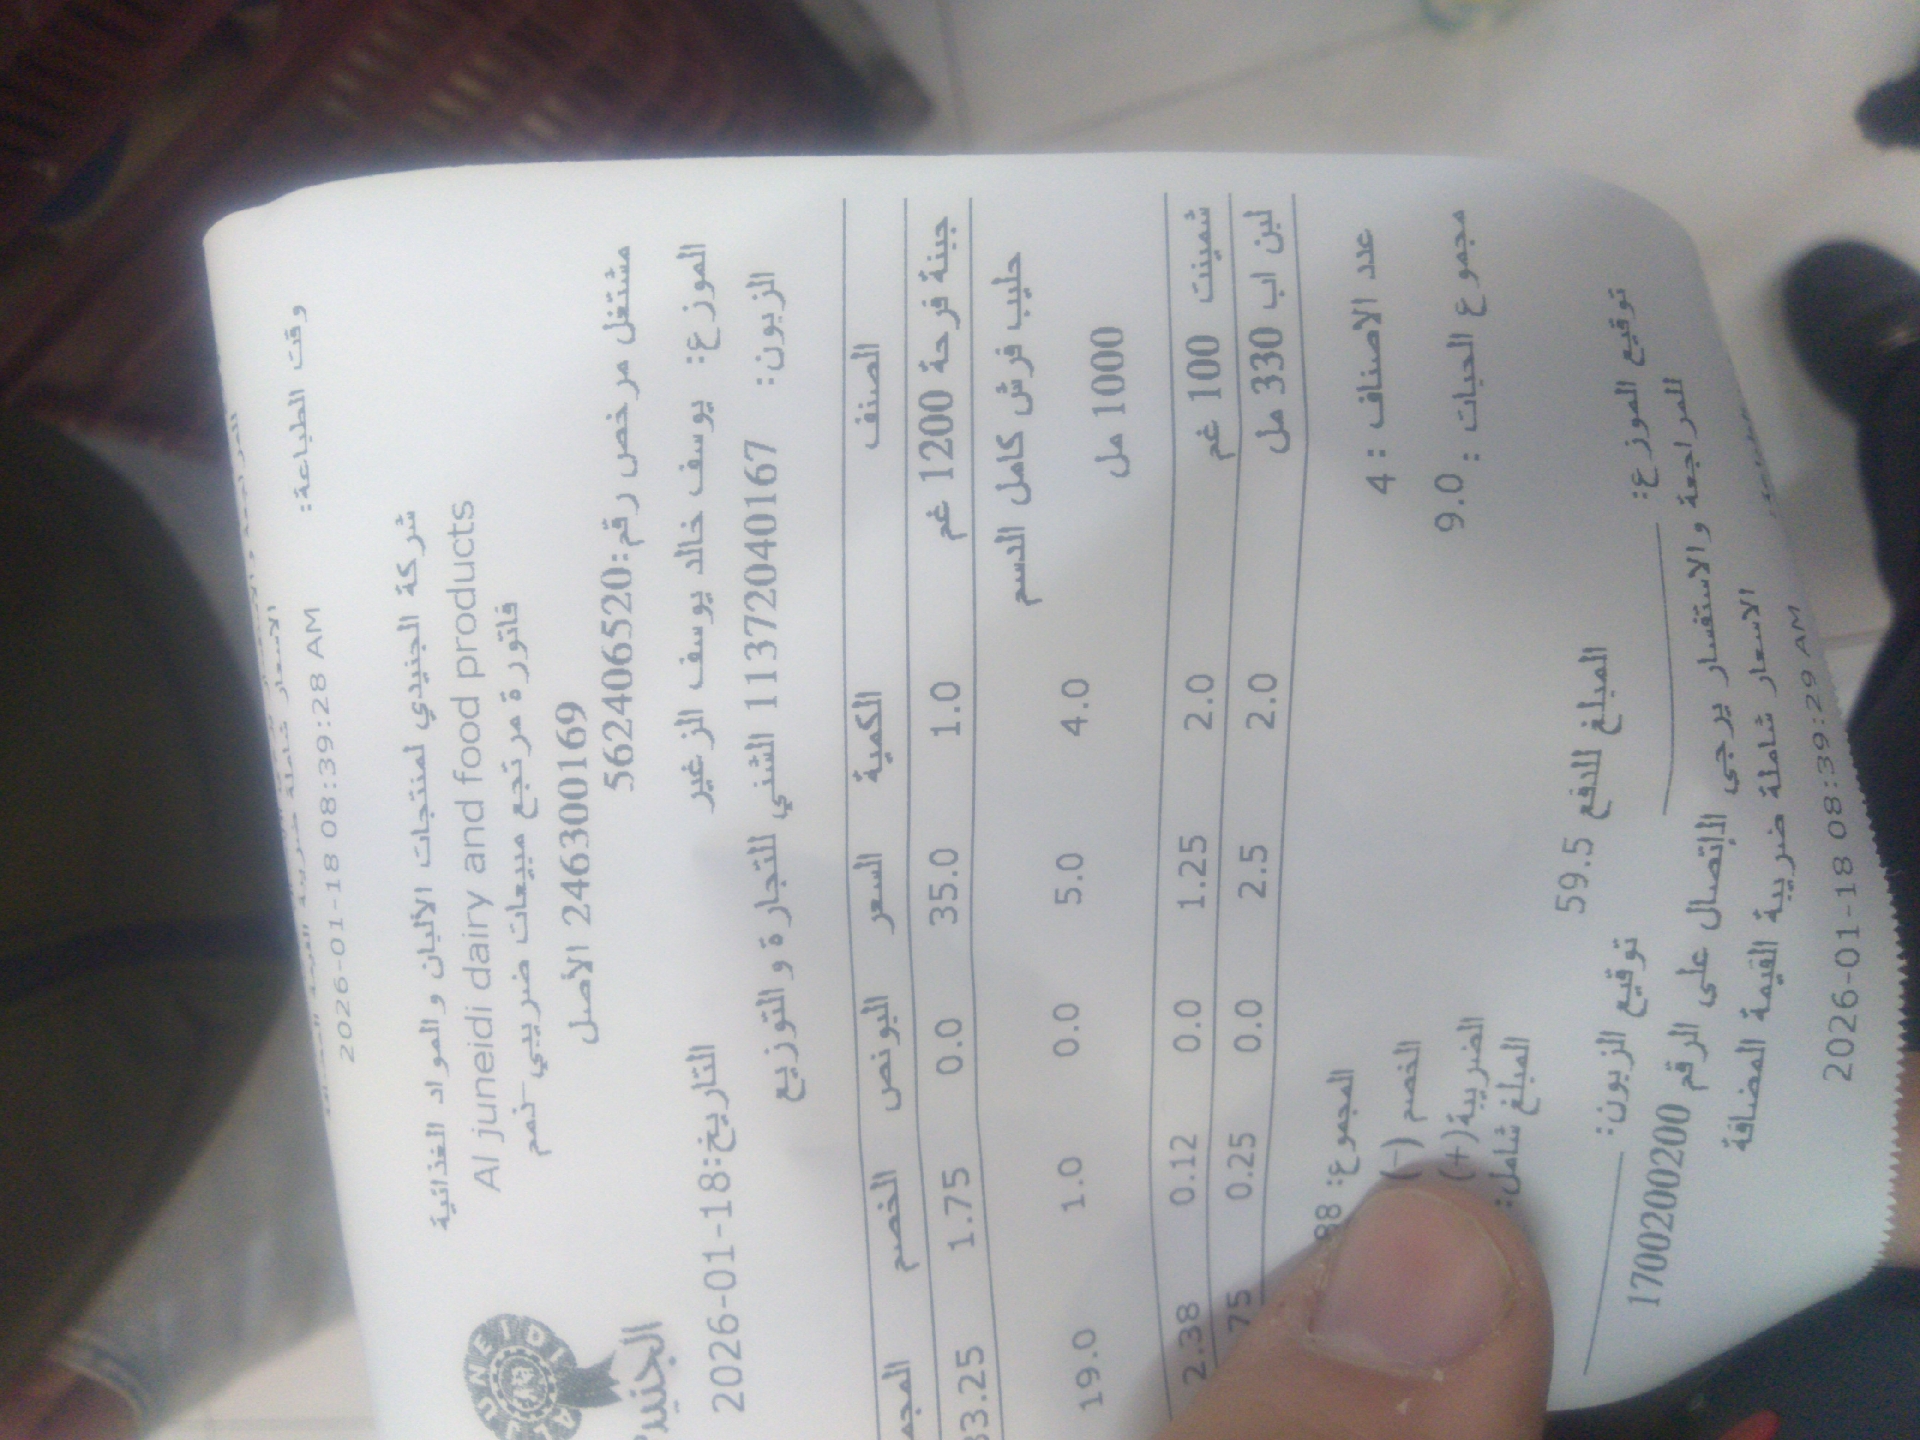 وقت الطباعة:
2026-01-18 08:39:28 AM
شركة الجنيدي لمنتجات الألبان والمواد الغذائية
Al juneidi dairy and food products
فاتورة مرتجع مبيعات ضريبي-نمم
246300169 الأصل
مشتغل مرخص رقم:562406520
JUNEIDI
الموزع: يوسف خالد يوسف الزغير
التاريخ:2026-01-18
الزبون: 11372040167 الشني للتجارة والتوزيع
الصنف الكمية السعر البونص الخصم
جبنة فرحة 1200 غم 1.0 35.0 0.0 1.75 33.25
حليب فرش كامل الدسم 1000 مل 4.0 5.0 0.0 1.0 19.0
شمينت 100 غم 2.0 1.25 0.0 0.12 2.38
لبن اب 330 مل 2.0 2.5 0.0 0.25 75
عدد الاصناف : 4
المجموع:
مجموع الحبات : 9.0
الخصم (-)
الضريبة(+)
المبلغ شامل:
المبلغ للدفع 59.5
توقيع الموزع:
توقيع الزبون:
للمراجعة والاستفسار يرجى الإتصال على الرقم 1700200200
الاسعار شاملة ضريبة القيمة المضافة
2026-01-18 08:39:29 AM